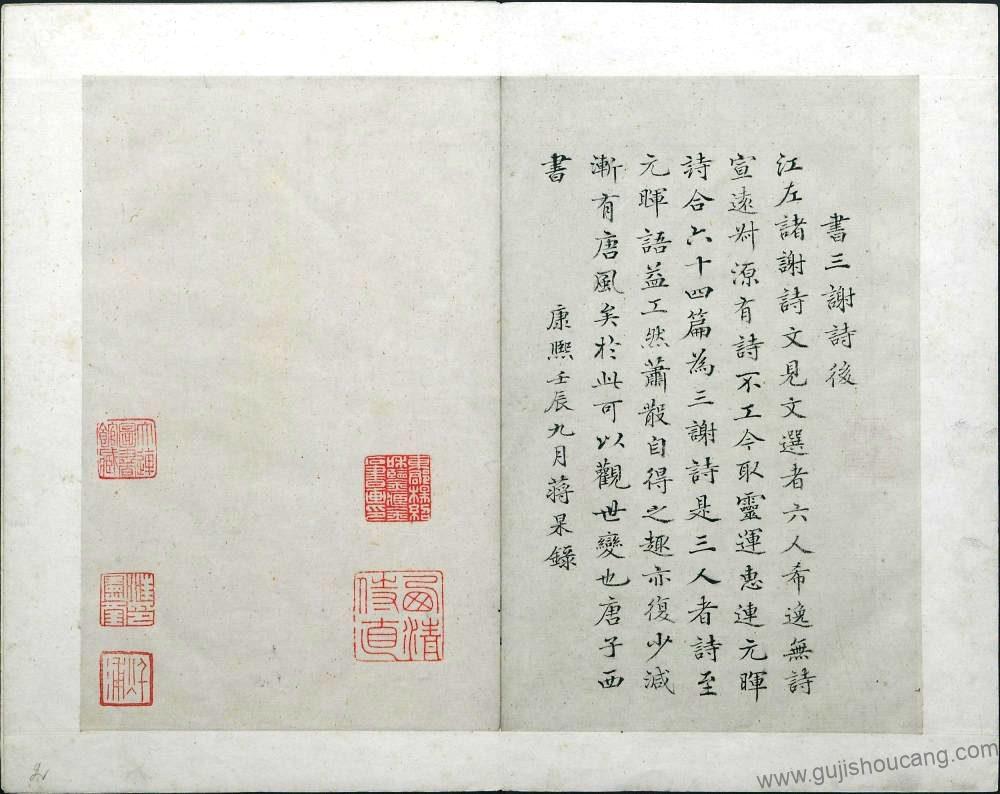 書三謝詩後
江左諸謝詩文見文選者六人希逸無詩
宣遠叔源有詩不工今取靈運惠連元暉
詩合六十四篇為三謝詩是三人者詩至
元暉語益工然蕭散自得之趣亦復少減
漸有唐風矣於此可以觀世變也唐子西
書
康熙壬辰九月蔣杲錄
西清侍直
大連圖書館藏
www.gujishoucang.com